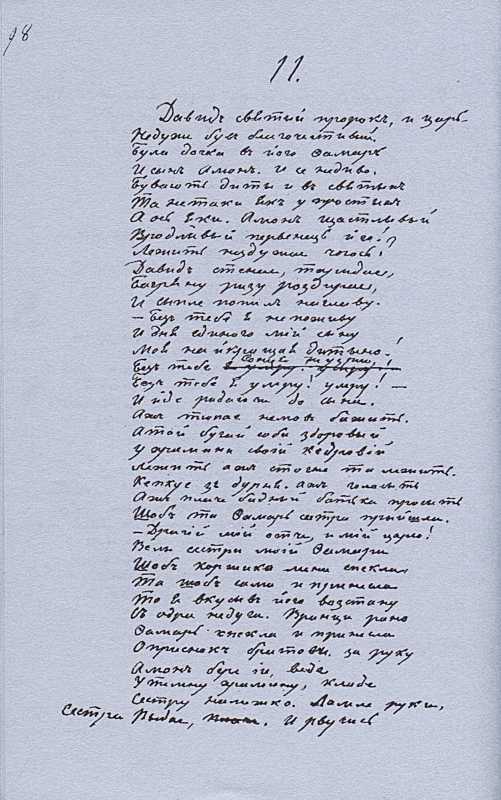 98
11.
Давидъ святый пророкъ, и царь
Недуже бувъ благочестивий.
Була дочка въ його Ѳамарь
И сынъ Амонъ. И се недиво.
Бувають диты и въ святыхъ
Та не таки якъ у простыхъ
А ось яки. Амонъ щастлывый
Вродлывый первенець його!
Лежыть нездужае чогось!
Давидъ стенае, та рыдае,
Багряну ризу роздирае,
И сыпле попилъ на главу.
— Безъ тебе я не пожыву
И дня единого мій сыну
Моя найкращая дытыно!
Безъ тебе сонце не узрю!
Безъ тебе я умру! умру! —
И йде рыдаючи до сына.
Ажъ тюпае немовъ бижить.
А той бугай соби здоровый
У храмини своій кедровій
Лежить ажъ стогне та лежить.
Кепкує зъ дурня. ажъ голосить
Ажъ плаче бидный батька просить
Щобъ та Ѳамарь сестра прыйшла.
— Драгій мій отче, и мій царю!
Вели сестри моій Ѳамари
Щобъ коржика мени спекла,
Та щобъ сама и принесла
То я вкусывъ його возстану
Съ одра недуги. Вранци рано
Ѳамарь спекла и принесла
Опрѣснокъ братови. за руку
Амонъ бере іи, веде
У темну храмину, кладе
Сестру на лижко. Ламле руки,
Сестра Рыдае, И рвучись